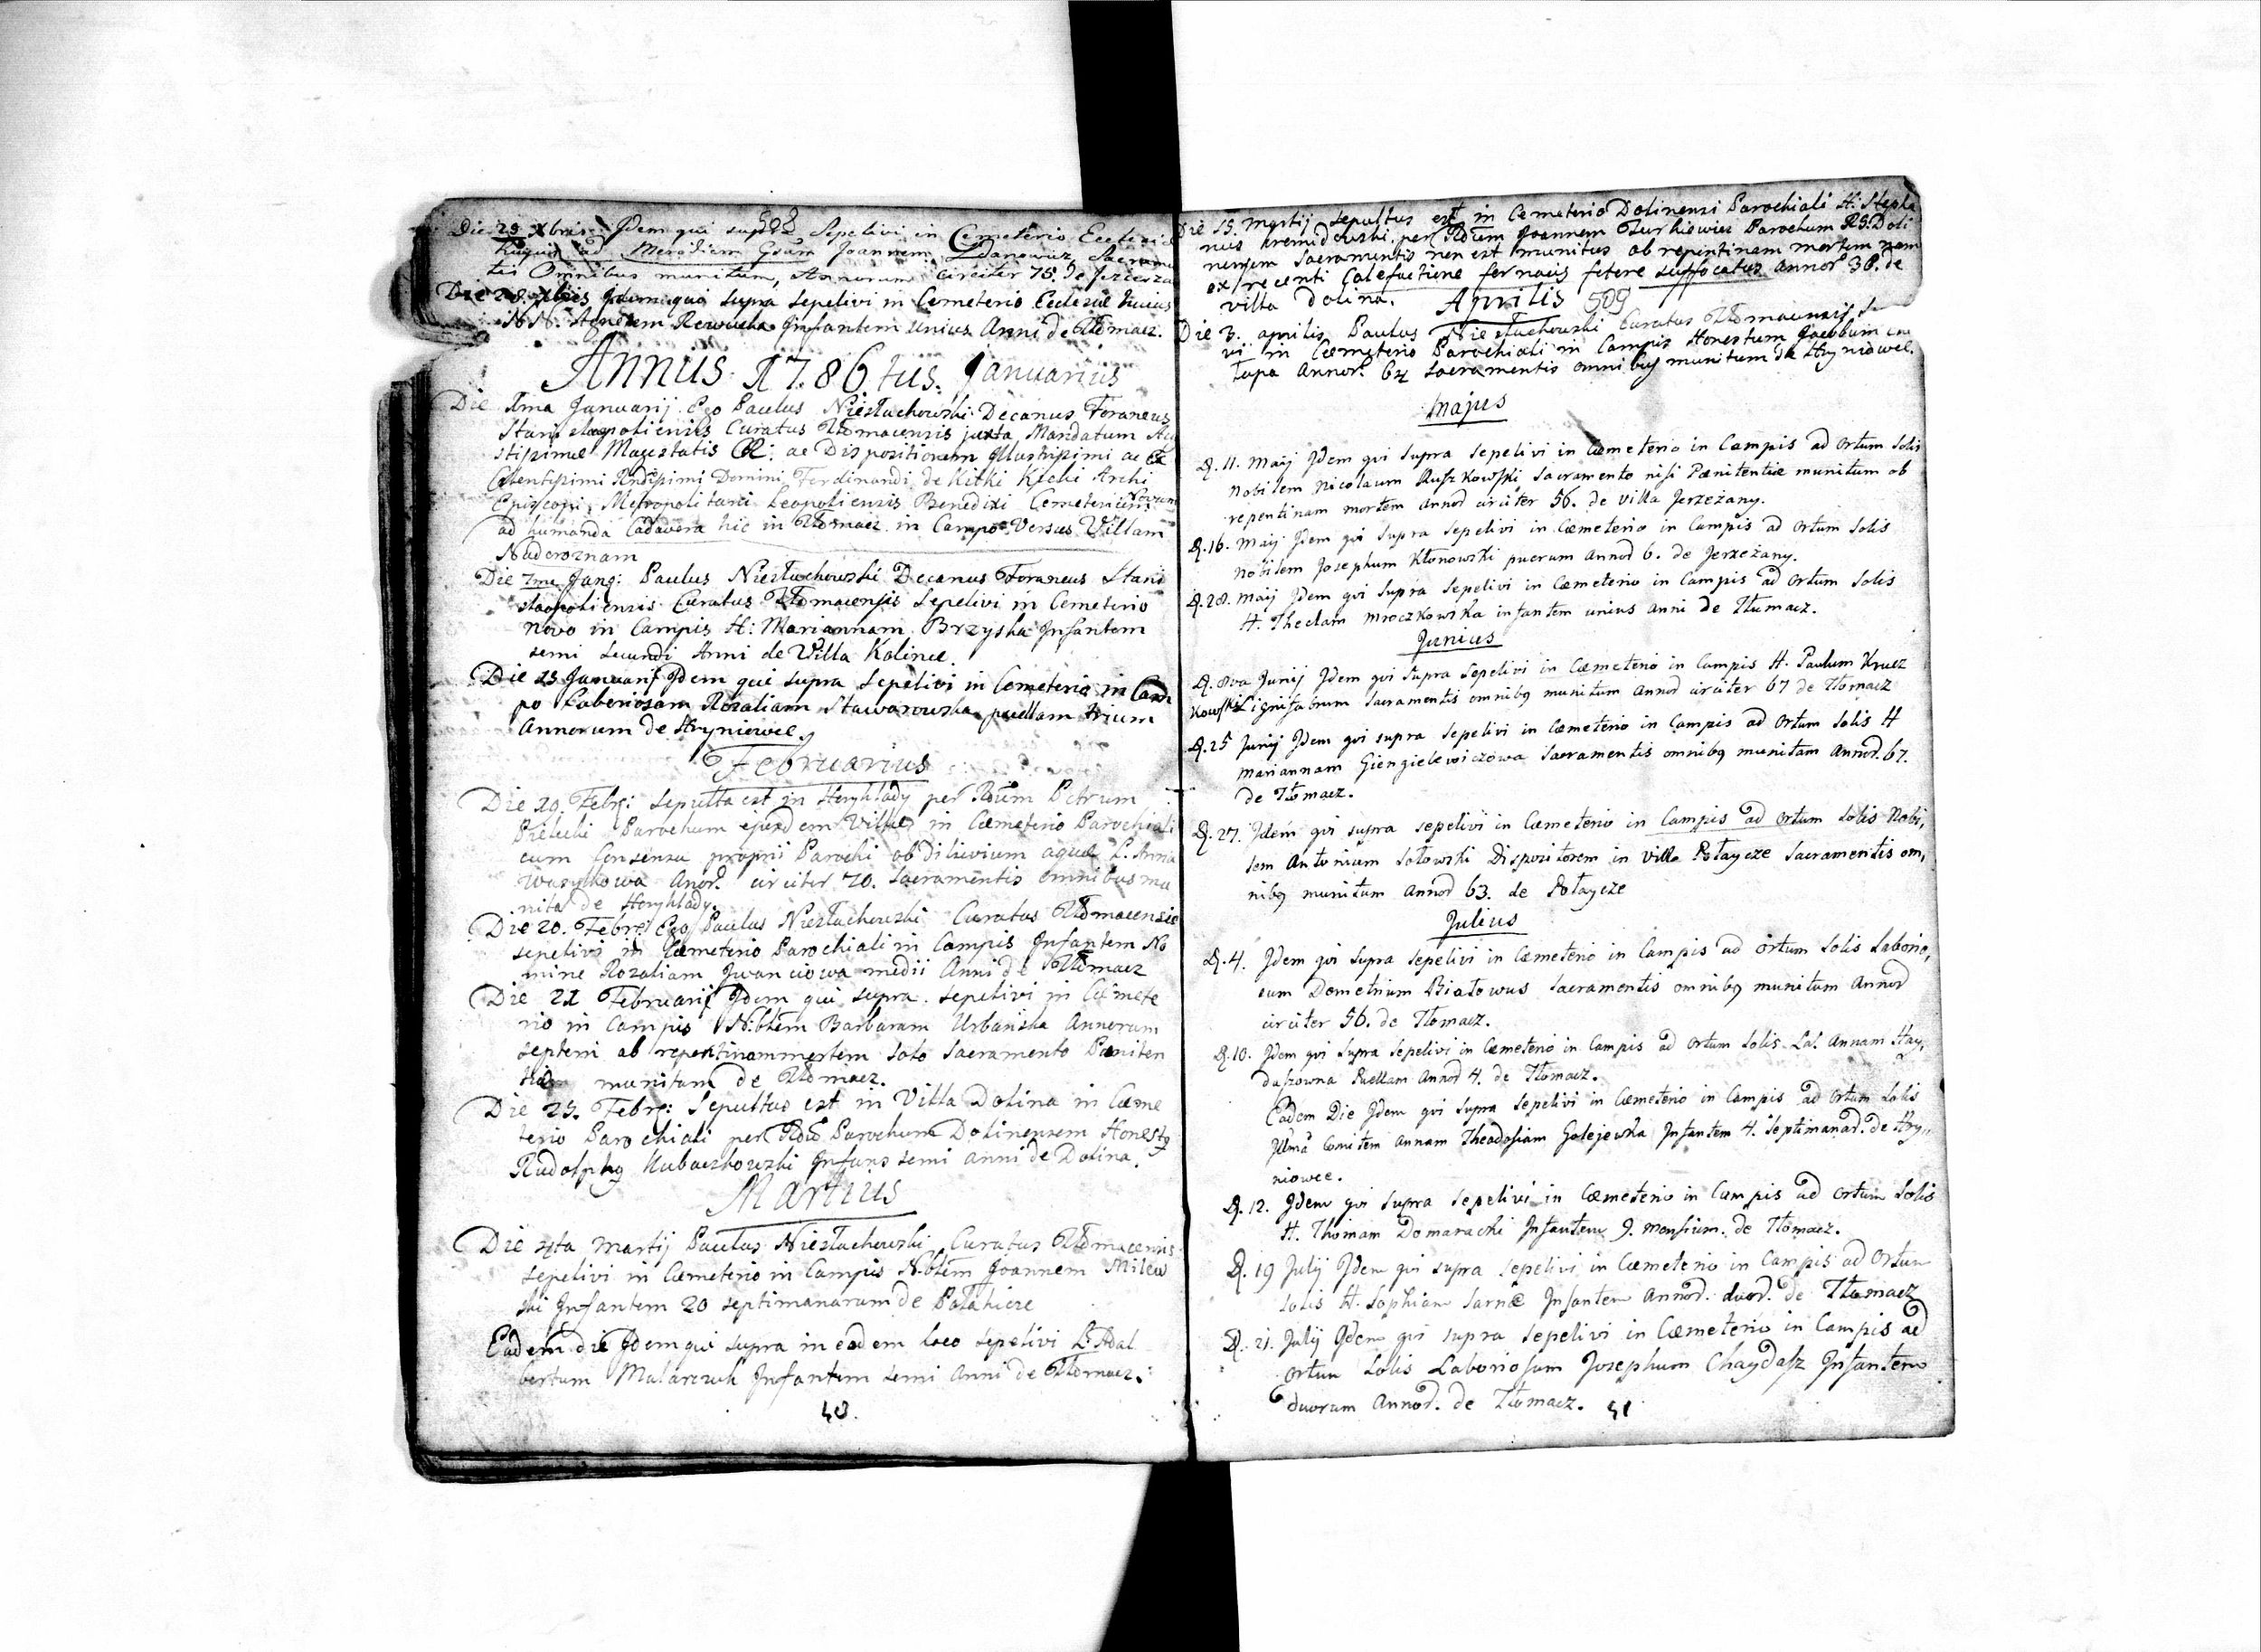 508
Die 29 Xbris Idem qui supra Sepelivi in Cemeterio Ecclesiæ
hujus ad Meridiem Gsum Joannem Zdanowicz Sacramen
tis Omnibus munitum, Annorum circiter 75. de Jezierza
Die 28. Xbris Idem qui supra Sepelivi in Cemeterio Ecclesiæ hujus
NN. Agnetem Infantem unius Anni de Tłomacz.
Annus 1786tus. Januarius
Die 1ma Januarij Ego Paulus Niesłuchowski Decanus Foraneus
Stanislaopoliensis Curatus Tłomacensis juxta Mandatum Au
stissimæ Majestatis ac Dispositionem Illustrissimi ac Ex
Celentissimi Rndissimi Domini Ferdinandi de Kitki Kicki Archi
Episcopi Metropolitani Leopoliensis Benedixi Cemeterium Novum
ad humanda Cadavera hic in Tłomacz in Campo Versus Villam
Nadoroznam
Die 7ma Janij: Paulus Niesłuchowski Decanus Foraneus Stani
slaopoliensis Curatus Tłomacensis Sepelivi in Cemeterio
Novo in Campis H: Mariannam Brzyska Infantem
semi secundi Anni de Villa Kolince.
Die 25 Januarij Idem qui supra Sepelivi in Cemeterio in Cam
po Laboriosam Rozaliam Stawarowska puellam trium
Annorum de Hryniowce.
Februarius
Die 10. Febr: Sepulta est in Horyhlady per Rdum Petrum
Bielecki Parochum ejusdem Villæ in Cæmeterio Parochiali
cum Consensu proprii Parochi ob diluvium aquæ L. Anna
Wasylkowa Anor. circiter 70. Sacramentis omnibus mu
nita de Horyhlady.
Die 20. Febr: Ego Paulus Niesłuchowski Curatus Tłomacensis
sepelivi in Cæmeterio Parochiali in Campis Infantem No
mine Rozaliam Iwanciowa medii Anni de Tłomacz
Die 21 Februarij Idem qui supra sepelivi in Cæmete
rio in Campis Nobilem Barbaram Urbańska Annorum
septem ob repentinam mortem solo Sacramento Pæniten
tiæ munitam de Tłomacz.
Die 25. Febr: Sepultus est in Villa Dolina in Cæme
terio Parochiali per Rdum Parochum Dolinensem Honestg
Rudolphg Kubaczkowski Infans semi anni de Dolina.
Martius
Die 4ta Martij Paulus Niesłuchowski Curatus Tłomacensis
sepelivi in Cæmeterio in Campis Nobilem Joannem Milew
ski Infantem 20 septimanarum de Palahicze
Eadem die Idem qui supra in eodem loco sepelivi L. Adal
bertum Malarczuk Infantem semi Anni de Tłomacz.
40.
Die 15. Martij sepultus est in Cemeterio Dolinensi Parochiali H: Stepha
nus per Rdum Joannem Turkiewicz Parochum RG. Doli
nensem Sacramentis non est munitus ob repentinam mortem nam
ex recenti Calefactione fornacis fetore suffocatus annor 38. de
villa Dolina.
Aprilis 509
Die 3. aprilis Paulus Niesłuchowski Curatus Tłomacensis Se
vi in Cæmeterio Parochiali in Campis Honestum Jacobum
łupa Annor. 64 Sacramentis omnibus munitum de Hryniowce.
Majus
D. 11. Maij Idem qui supra sepelivi in Cæmeterio in Campis ad ortum Solis
Nobilem Nicolaum Ruszkowski Sacramento nisi Pænitentiæ munitum ob
repentinam mortem annor circiter 56. de villa Jerzeżany.
D. 16. Maij Idem qui supra sepelivi in Cæmeterio in Campis ad ortum Solis
Nobilem Josephum Kłonowski puerum annor 6. de Jerzeżany.
D. 28. Maij Idem qui supra sepelivi in Cæmeterio in Campis ad ortum Solis
H. Theclam Mroczkowska infantem unius anni de Tłumacz.
Junius
D. 8va Junij Idem qui supra sepelivi in Cæmeterio in Campis H. Paulum Krucz
kowski Lignifabrum Sacramentis omnibg munitum Annor circiter 67 de Tłomacz
D. 25 Junij Idem qui supra sepelivi in Cæmeterio in Campis ad ortum Solis H
Mariannam Giengielewiczowa Sacramentis omnibg munitam Annor. 67.
de Tłomacz.
D. 27. Idem qui supra sepelivi in Cæmeterio in Campis ad ortum Solis Nobi,
lem Antonium Sołowski Dispositorem in villa Połaycze Sacramentis om,
nibg munitum Annor 63. de Połaycze
Julius
D. 4. Idem qui supra sepelivi in Cæmeterio in Campis ad ortum Solis Laborio,
sum Demetrium Białowus Sacramentis omnibg munitum Annor
circiter 56. de Tłomacz.
D. 10. Idem qui supra sepelivi in Cæmeterio in Campis ad ortum Solis Lab. Annam Hay,
daszowna Puellam Annor 4. de Tłomacz.
Eadem Die Idem qui supra sepelivi in Cæmeterio in Campis ad ortum Solis
Illmã Comitem Annam Theodosiam Golejewska Infantem 4. Septimanar. de Hry,,
niowce.
D. 12. Idem qui supra sepelivi in Cæmeterio in Campis ad ortum Solis
H. Thomam Domaracki Infantem 9. Mensium. de Tłomacz.
D. 19 Julij Idem qui supra sepelivi in Cæmeterio in Campis ad ortum
Solis H. Sophiam Sarnæ Infantem Annor. duor. de Tłomacz
D. 21. Julij Idem qui supra sepelivi in Cæmeterio in Campis ad
ortum Solis Laboriosum Josephum Chaydasz Infantem
duorum Annor. de Tłomacz.
41